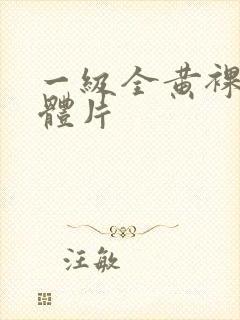 一級全黄裸
體片
汪敏